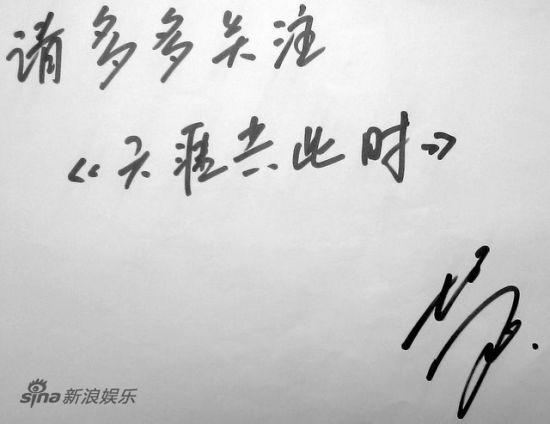 请多多关注
《天涯共此时》
sina 新浪娱乐